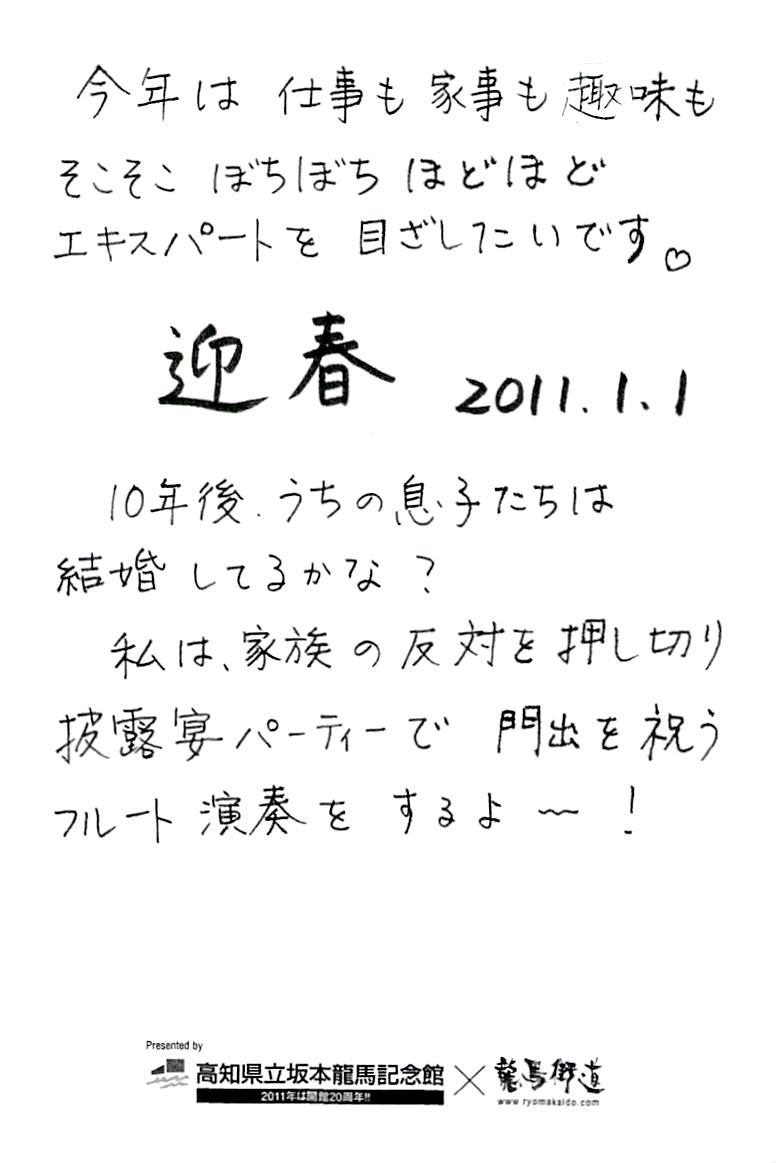 今年は 仕事も 家事も 趣味も
そこそこ ぼちぼち ほどほど
エキスパートを 目ざしたいです。♡
迎春 2011.1.1
10年後、うちの息子たちは
結婚してるかな？
私は、家族の反対を押し切り
披露宴パーティーで 門出を祝う
フルート演奏を するよ〜！
Presented by
高知県立坂本龍馬記念館 × 龍馬街道
2011年は開館20周年!!
www.ryomakaido.com